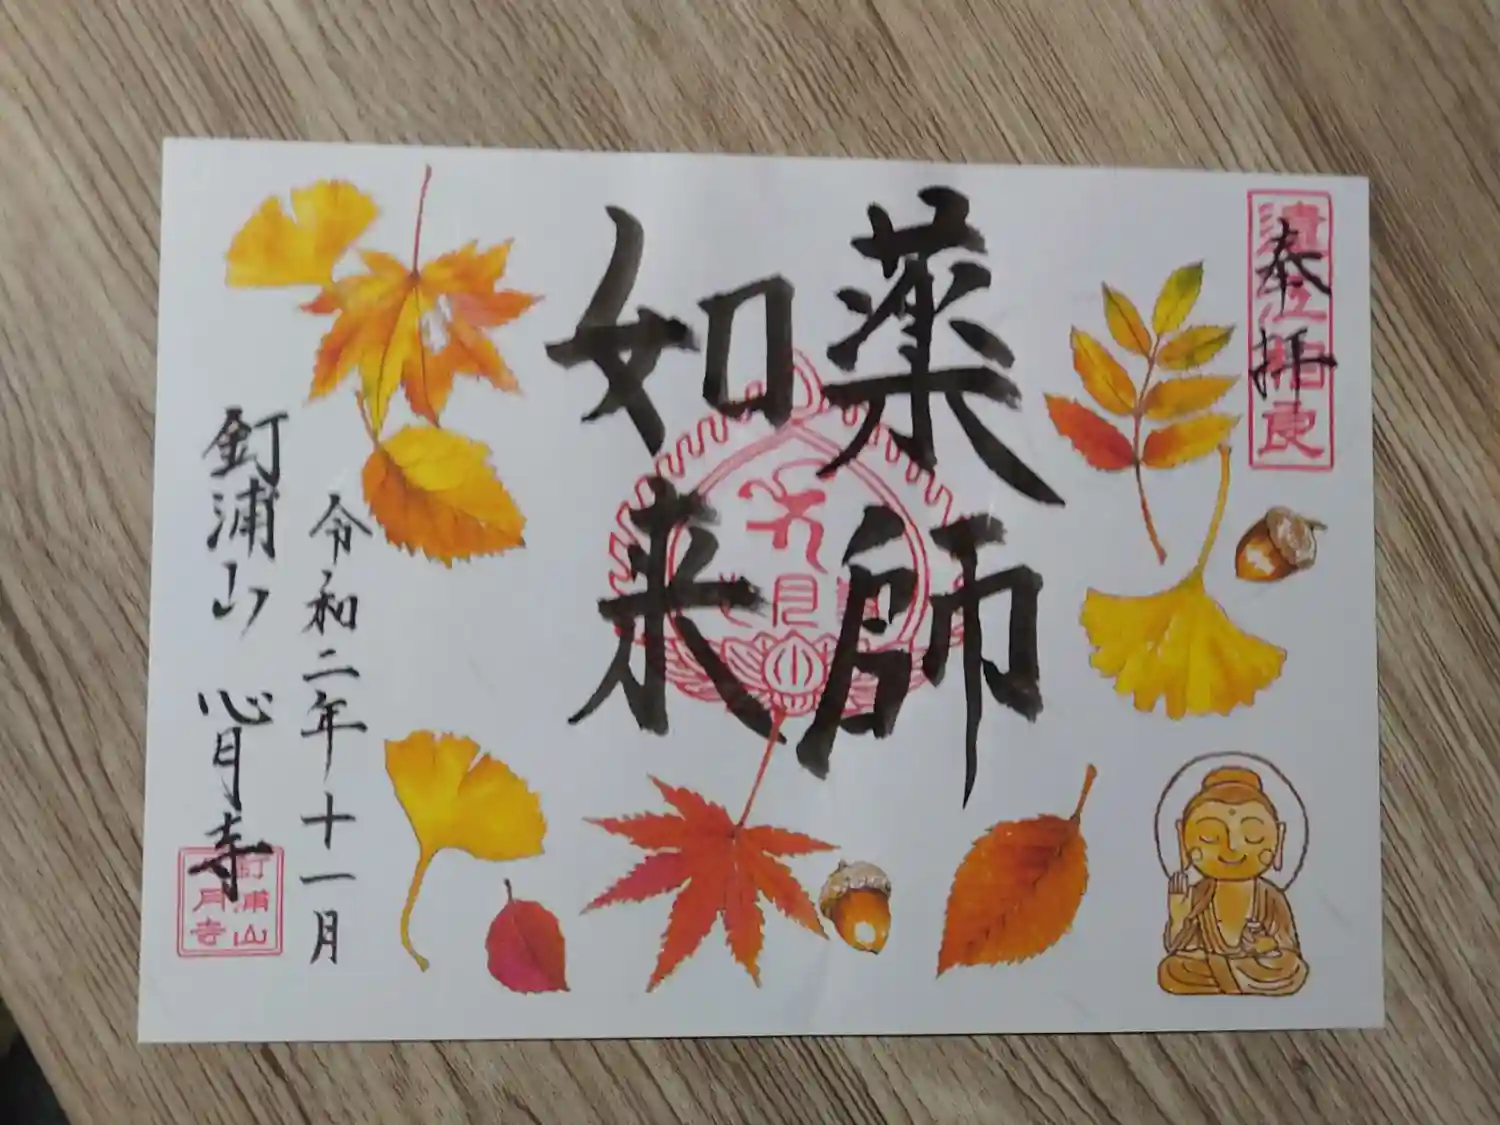 奉拝
薬師
如来
令和二年十一月
釘浦山 心月寺
釘浦山
月寺